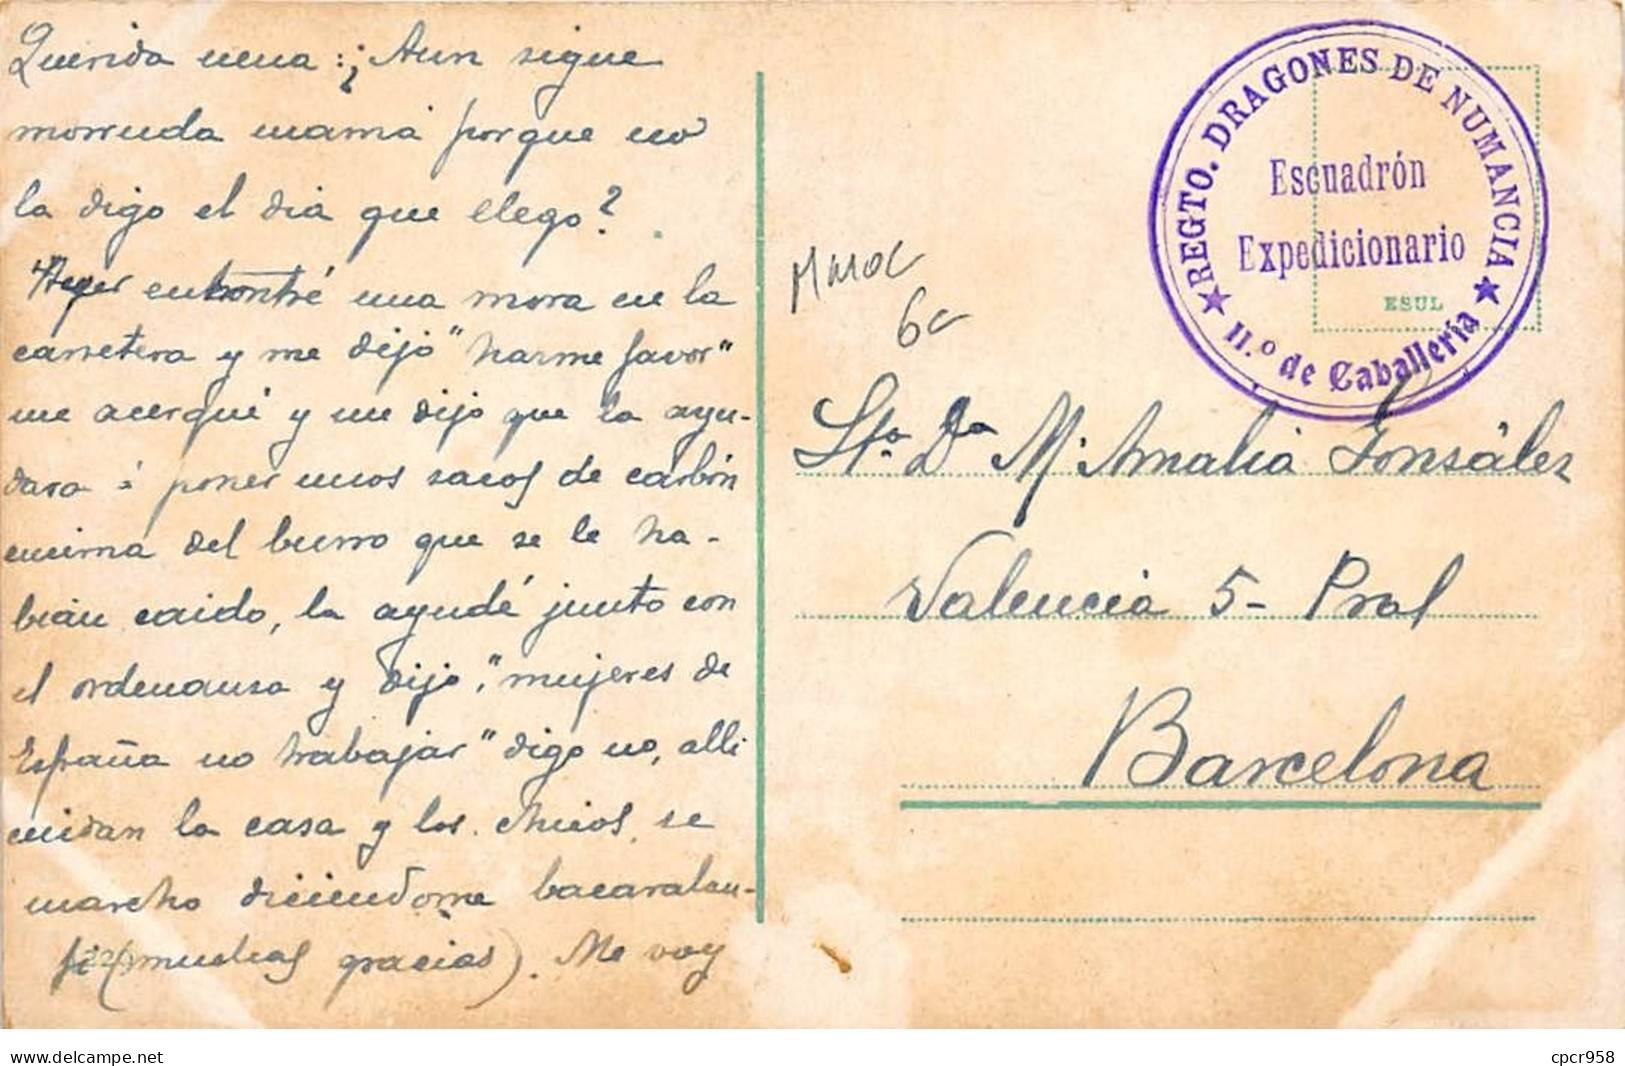 Querida nena: ¿Aun sigue
morruda mamá porque no
la digo el dia que llego?
Ayer encontré una mora en la
carretera y me dijo "harme favor"
me acerqué y me dijo que la ayu-
dara á poner unos sacos de carbón
encima del burro que se le ha-
bian caido, la ayudé junto con
el ordenansa y dijo, "mujeres de
España no trabajar" digo no, alli
cuidan la casa y los chicos, se
marcho diciendome bacaralau-
fi (muchas gracias). Me voy
REGTO. DRAGONES DE NUMANCIA
Escuadrón
Expedicionario
11.º de Caballería
ESUL
Maroc
6c
Sta. Dª Mª Amalia Gonsález
Valencia 5 - Pral
Barcelona
delcampe.net
cpcr958